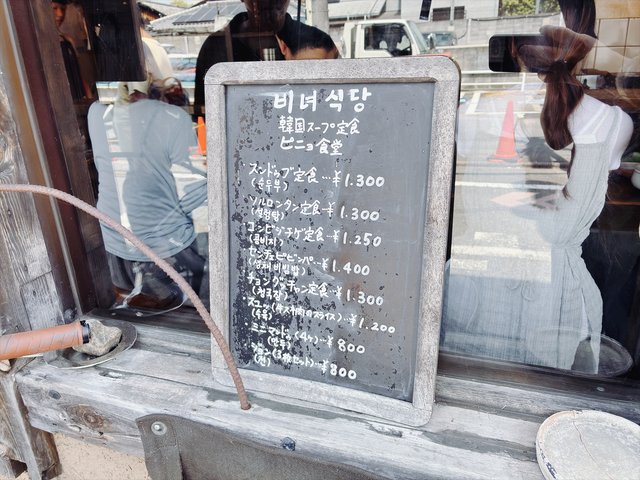 비녀 식당
韓国スープ定食
ピニョ食堂
スンドゥブ定食…¥1.300
(순두부)
ソルロンタン定食…¥1.300
(설렁탕)
コンビジチゲ定食…¥1.250
(콩비지)
センチェビビンパ…¥1.400
(생채 비빔밥)
チョングッチャン定食…¥1.300
(청국장)
スユク(牛スネ肉のスライス)…¥1.200
(수육)
ミニマンドゥ(4ヶ)…¥800
(만두)
(3種セット)…¥800
(전)